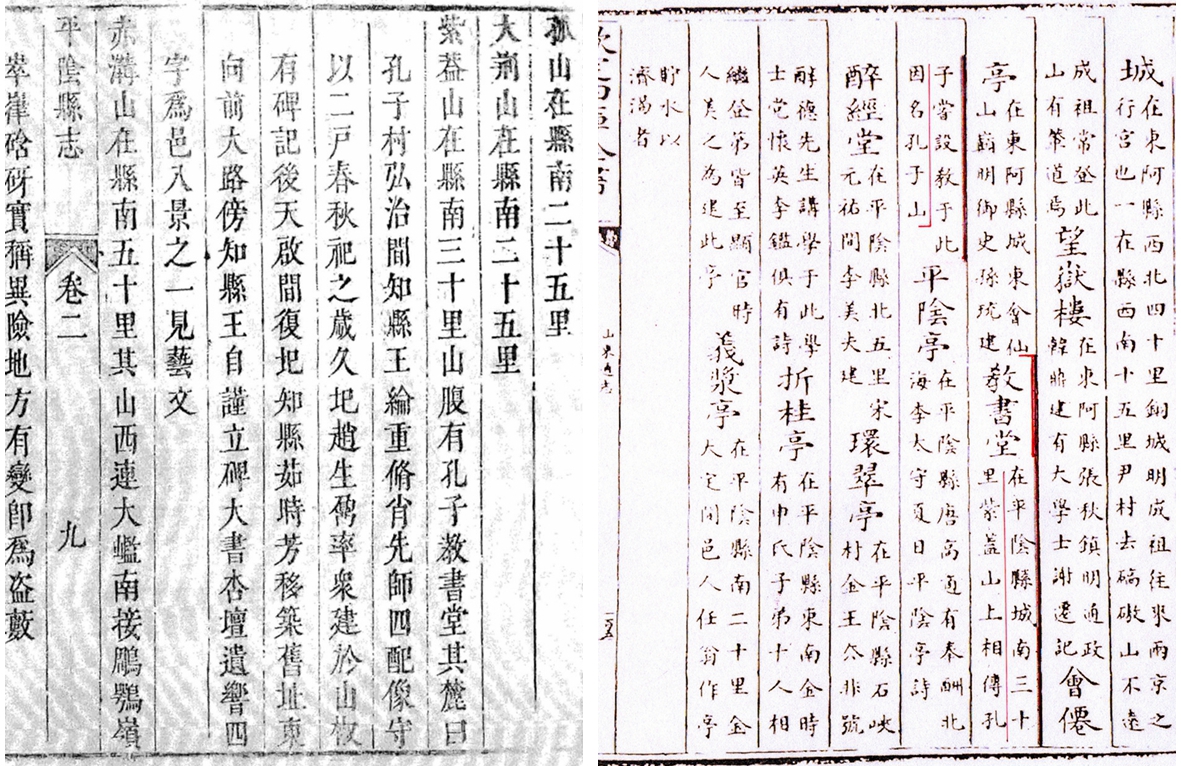 孤山在縣南二十五里
大荆山在縣南二十五里
紫葢山在縣南三十里山腹有孔子教書堂其麓曰
孔子村弘治間知縣王綸重脩肖先師四配像守
以二戸春秋祀之歲久圮趙生儁率衆建於山椒
有碑記後天啟間復圮知縣茹時芳移築舊址東
向前大路傍知縣王自謹立碑大書杏壇遺響四
字爲邑八景之一見藝文
赤溝山在縣南五十里其山西連大檻南接鵰鶚嶺
平陰縣志 卷二 九
硌砑實稱異險地方有變卽爲盗藪
城在東阿縣西北四十里銅城明成祖往來兩京之行宮也一在縣西南十五里尹村去碻磝山不遠
成祖常登此山有輦道焉望嶽樓在東阿縣張秋鎮明通政韓鼎建有大學士謝遷記會僊
亭在東阿縣城東會仙山巔明御史孫琉建教書堂在平陰縣城南三十里紫蓋山上相傳孔
子嘗設教于此因名孔子山平陰亭在平陰縣唐高適有奉酬北海李太守夏日平陰亭詩
醉經堂在平陰縣北五里宋元祐間李美夫建環翠亭在平陰縣石峽村金王去非號
醉德先生講學于此學士党懷英李鑑俱有詩折桂亭在平陰縣東南金時有申氏子弟十人相
繼登第皆至顯官時人美之為建此亭義漿亭在平陰縣南二十里金大定間邑人任翁作亭
貯水以濟渴者
山東通志